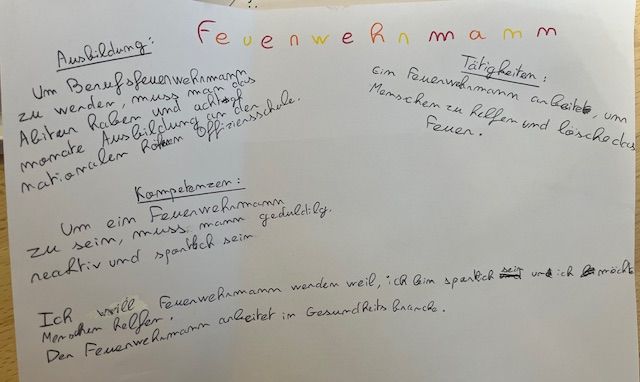 Feuenwehnmamm
Ausbildung:
Um Berufsfeuerwehrmann
zu werden, muss man das
Abitur haben und acht
monate Ausbildung an der
nationalen Offiziersschule.
Tätigkeiten:
ein Feuerwehrmann arbeitet, um
Menschen zu helfen und lösche das
Feuer.
Kompetenzen:
Um ein Feuerwehrmann
zu sein, muss mann geduldilg,
reaktiv und sportlich sein
Ich will Feuerwehrmann werden weil, ich bim sportlich und ich möcht
Menschen helfen.
Der Feuerwehrmann arbeitet im Gesundheits branche.